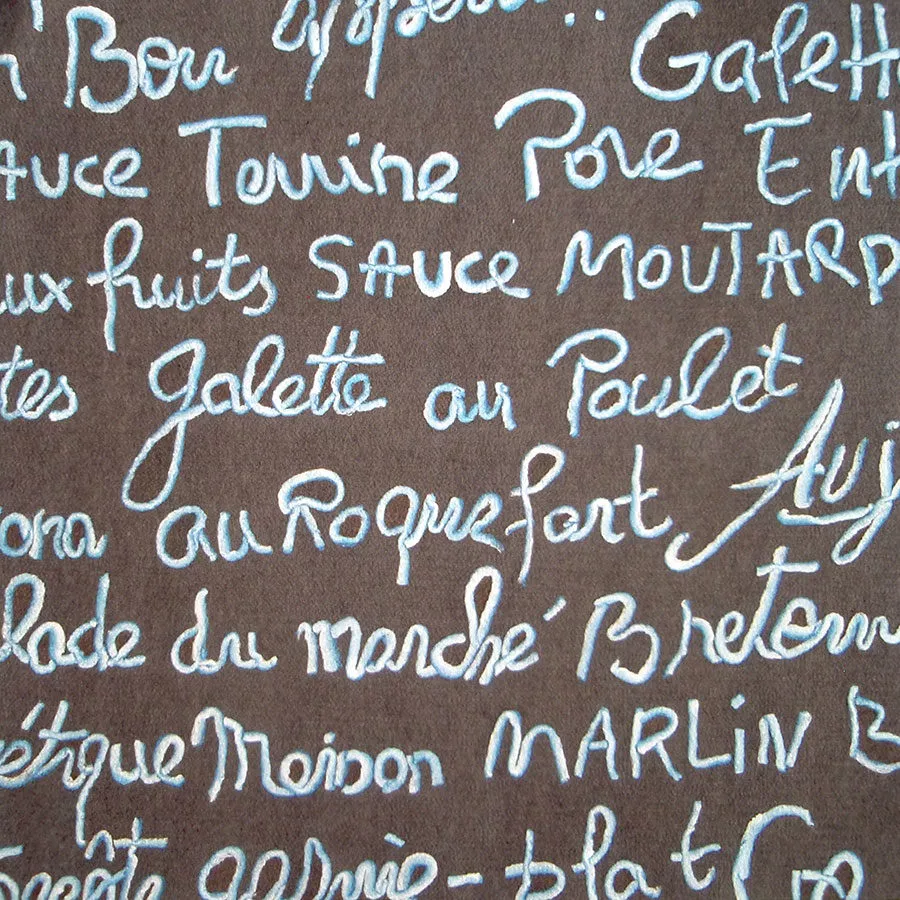 Bon appétit..
Galett
auce Terrine Pore Ent
ux fruits SAUCE MOUTARD
tes galette au Poulet
ona au Roquefort Auj
lade du marché Bretonn
étique Maison MARLiN B
garnie-plat